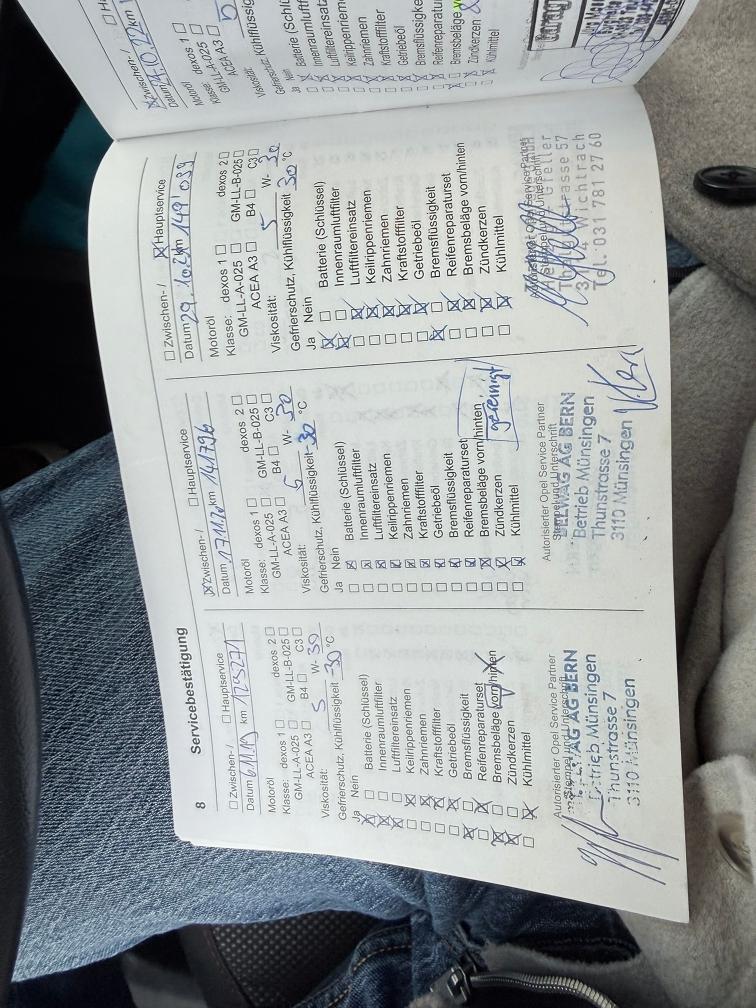 8
Servicebestätigung
☐ Zwischen- / ☐ Hauptservice
Datum 6.11.19 km 123271
Motoröl
Klasse: dexos 1 ☐ dexos 2 ☐
GM-LL-A-025 ☐ GM-LL-B-025 ☐
ACEA A3 ☐ B4 ☐ C3 ☐
Viskosität: 5 W- 30
Gefrierschutz, Kühlflüssigkeit -30 °C
Ja Nein
☒ ☐ Batterie (Schlüssel)
☒ ☐ Innenraumluftfilter
☒ ☐ Luftfiltereinsatz
☐ ☒ Keilrippenriemen
☐ ☒ Zahnriemen
☐ ☒ Kraftstofffilter
☐ ☒ Getriebeöl
☒ ☐ Bremsflüssigkeit
☐ ☒ Reifenreparaturset
☒ ☐ Bremsbeläge vorn/hinten
☒ ☐ Zündkerzen
☐ ☒ Kühlmittel
Autorisierter Opel Service Partner
Stempel und Unterschrift
AG BERN
Betrieb Münsingen
Thunstrasse 7
3110 Münsingen
☒ Zwischen- / ☐ Hauptservice
Datum km 141796
Motoröl
Klasse: dexos 1 ☐ dexos 2 ☐
GM-LL-A-025 ☐ GM-LL-B-025 ☐
ACEA A3 ☐ B4 ☐ C3 ☐
Viskosität: 5 W- 30
Gefrierschutz, Kühlflüssigkeit -30 °C
Ja Nein
☐ ☒ Batterie (Schlüssel)
☐ ☒ Innenraumluftfilter
☐ ☒ Luftfiltereinsatz
☐ ☒ Keilrippenriemen
☐ ☒ Zahnriemen
☐ ☒ Kraftstofffilter
☐ ☒ Getriebeöl
☐ ☒ Bremsflüssigkeit
☐ ☒ Reifenreparaturset
☐ ☒ Bremsbeläge vorn/hinten gereinigt
☐ ☒ Zündkerzen
☐ ☒ Kühlmittel
Autorisierter Opel Service Partner
Stempel und Unterschrift
BELWAG AG BERN
Betrieb Münsingen
Thunstrasse 7
3110 Münsingen
☐ Zwischen- / ☒ Hauptservice
Datum 29.10.21 km 149 039
Motoröl
Klasse: dexos 1 ☐ dexos 2 ☐
GM-LL-A-025 ☐ GM-LL-B-025 ☐
ACEA A3 ☐ B4 ☐ C3 ☐
Viskosität: 5 W- 30
Gefrierschutz, Kühlflüssigkeit 30 °C
Ja Nein
☒ ☐ Batterie (Schlüssel)
☒ ☐ Innenraumluftfilter
☐ ☒ Luftfiltereinsatz
☐ ☒ Keilrippenriemen
☐ ☒ Zahnriemen
☐ ☒ Kraftstofffilter
☐ ☒ Getriebeöl
☒ ☐ Bremsflüssigkeit
☐ ☒ Reifenreparaturset
☐ ☒ Bremsbeläge vorn/hinten
☐ ☒ Zündkerzen
☐ ☒ Kühlmittel
Autorisierter Opel Service Partner
Stempel und Unterschrift
Gfeller
Thunstrasse 57
Wichtrach
Tel. 031 781 27 60
☒ Zwischen- /
Datum .10.22 km
Motoröl
Klasse: dexos 1 ☐
GM-LL-A-025 ☐
ACEA A3 ☐
Viskosität:
Gefrierschutz, Kühlflüssig
Ja Nein
Batterie (Schlü
Innenraumluft
Luftfiltereinsat
Keilrippenrieme
Zahnriemen
Kraftstofffilter
Getriebeöl
Bremsflüssig
Reifenreparatu
Bremsbeläge
Zündkerzen
Kühlmittel
Garag